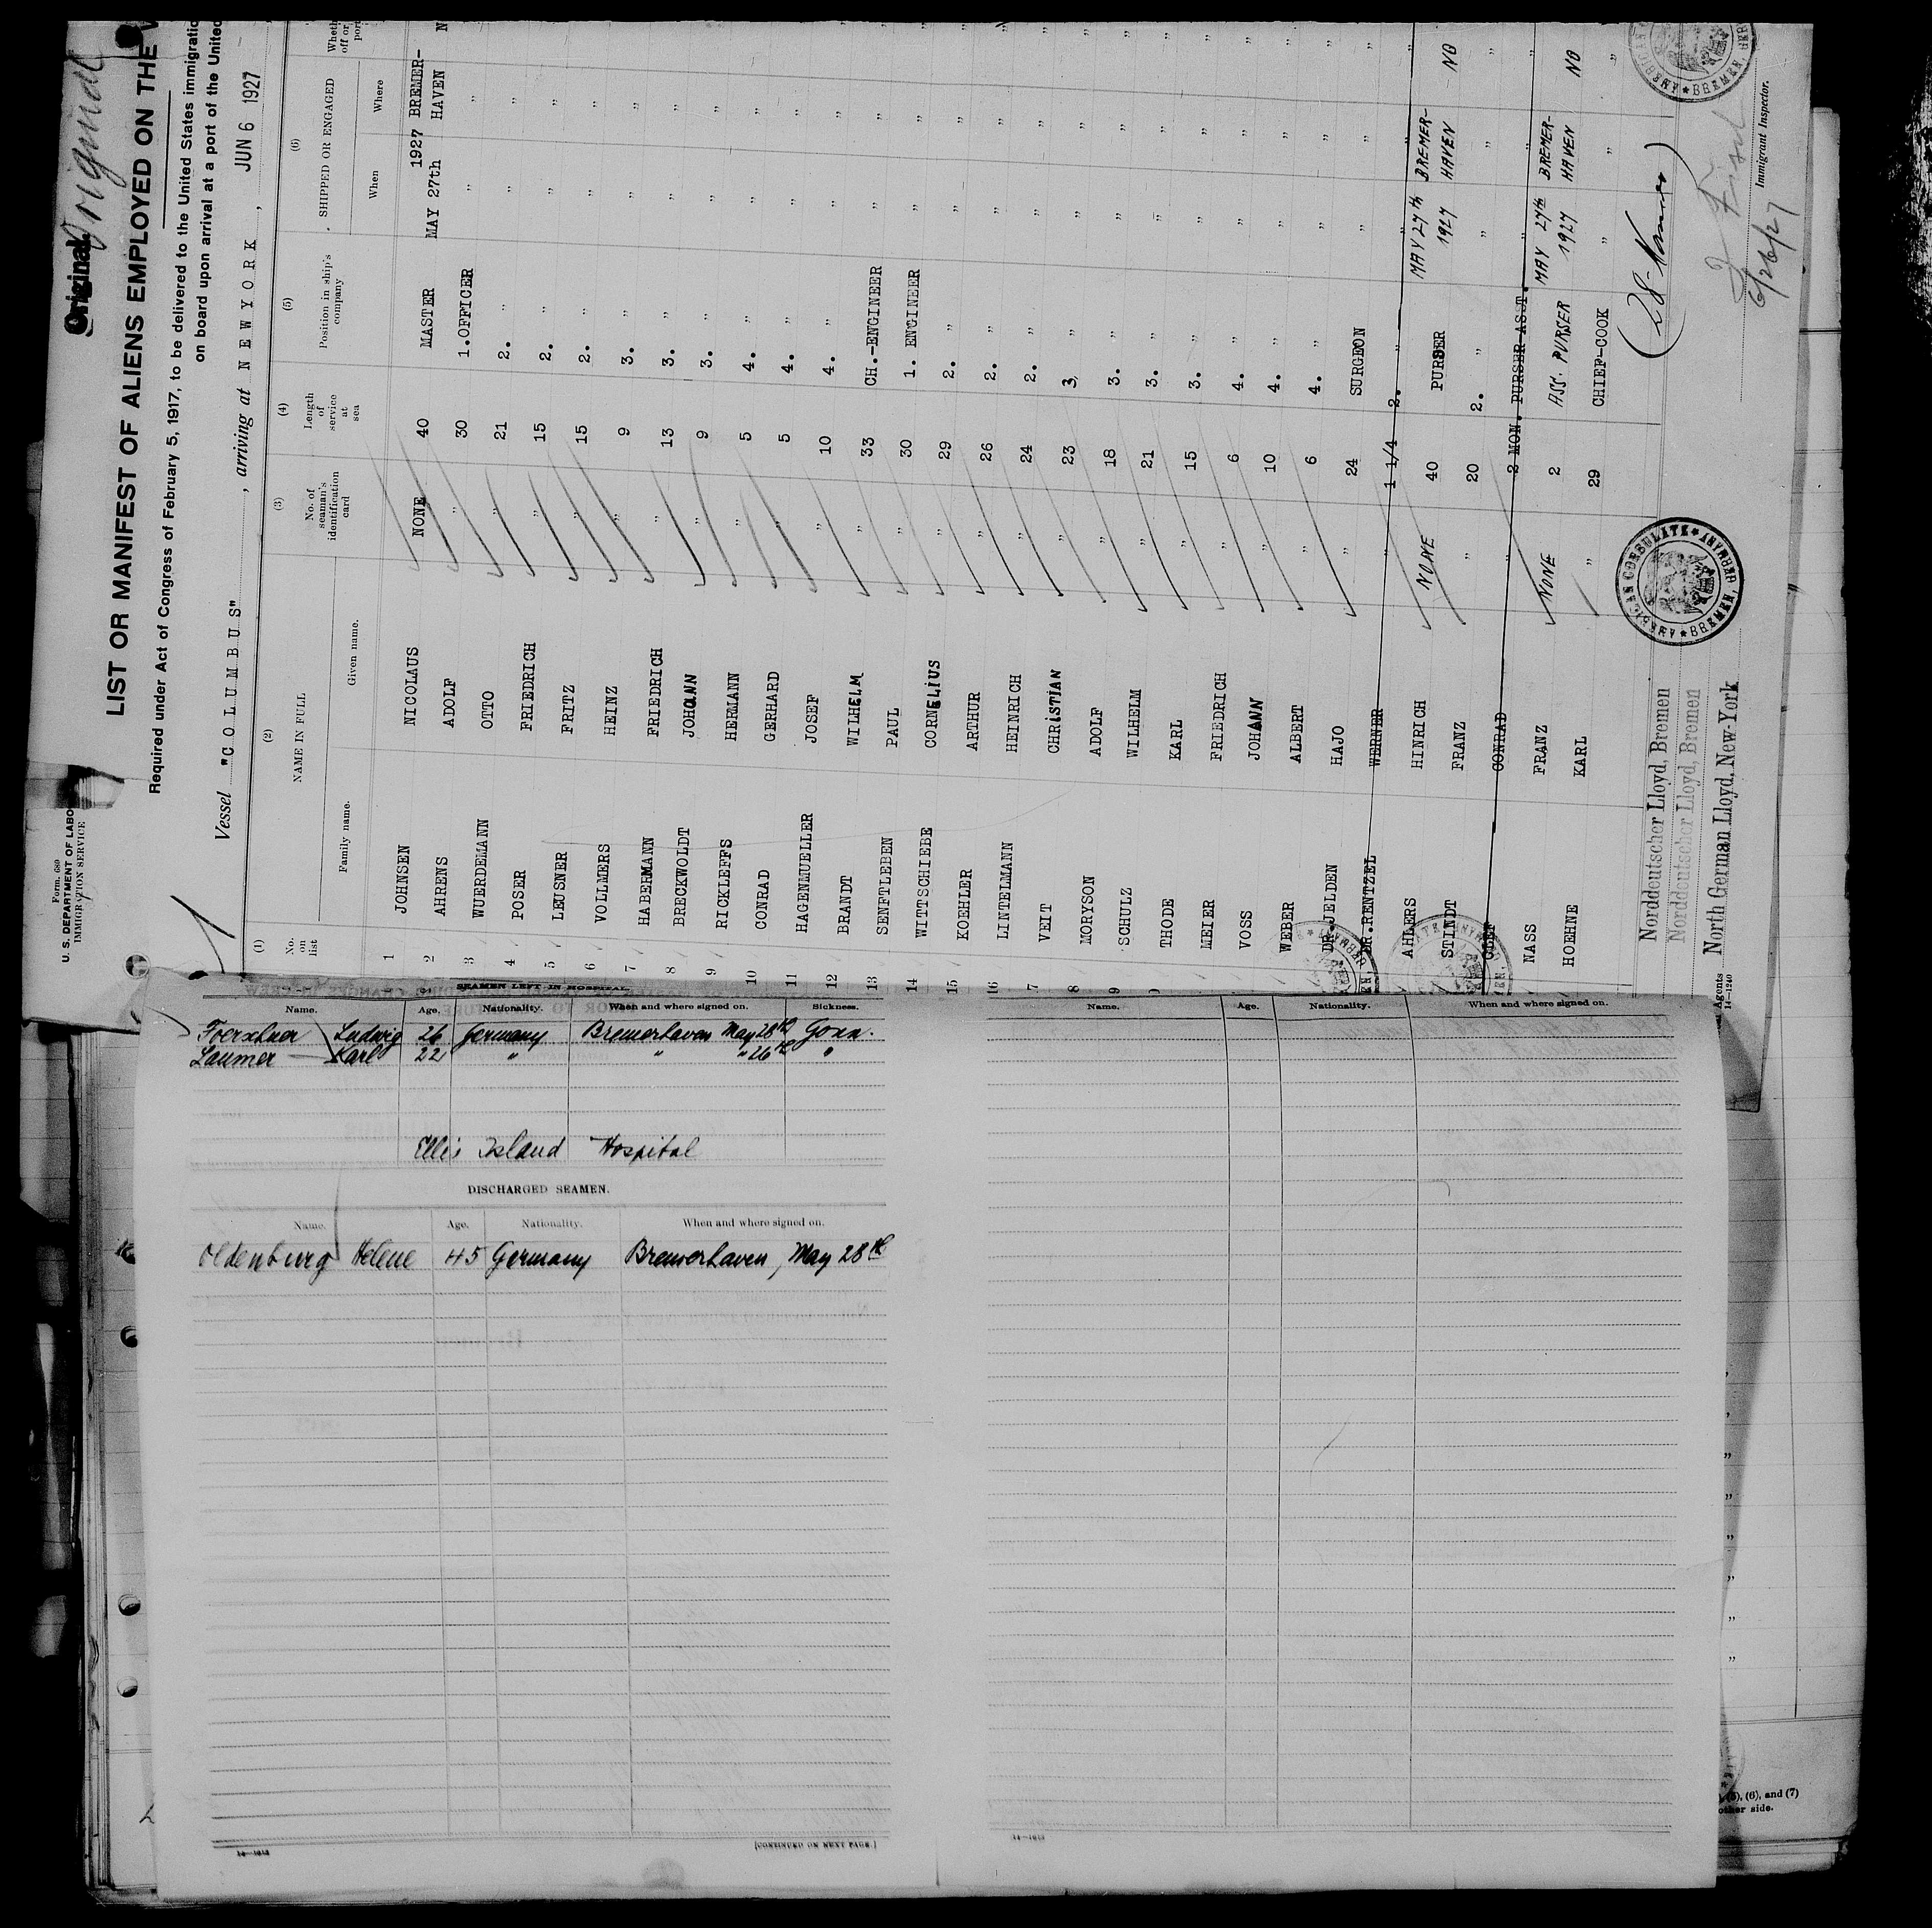 Original
Original.
LIST OR MANIFEST OF ALIENS EMPLOYED ON THE
Required under Act of Congress of February 5, 1917, to be delivered to the United States immigratio
on board upon arrival at a port of the United
Form 689
U. S. DEPARTMENT OF LABO
IMMIGRATION SERVICE
Vessel "COLUMBUS", arriving at NEWYORK, JUN 6 1927
(1) (2) (3) (4) (5) (6)
No. on list NAME IN FULL No. of seaman's identification card Length of service at sea Position in ship's company SHIPPED OR ENGAGED Wheth
Family name. Given name. When Where off or port
1 JOHNSEN NICOLAUS NONE 40 MASTER MAY 27th 1927 BREMER-HAVEN N
2 AHRENS ADOLF " 30 1.OFFICER " "
3 WUERDEMANN OTTO " 21 2. " " "
4 POSER FRIEDRICH " 15 2. " " "
5 LEUSNER FRITZ " 15 2. " " "
6 VOLLMERS HEINZ " 9 3. " " "
7 HABERMANN FRIEDRICH " 13 3. " " "
8 BRECKWOLDT JOHANN " 9 3. " " "
9 RICKLEFFS HERMANN " 5 4. " " "
10 CONRAD GERHARD " 5 4. " " "
11 HAGENMUELLER JOSEF " 10 4. " " "
12 BRANDT WILHELM " 33 CH.-ENGINEER " "
13 SENFTLEBEN PAUL " 30 1. ENGINEER " "
14 WITTSCHIEBE CORNELIUS " 29 2. " " "
15 KOEHLER ARTHUR " 26 2. " " "
16 LINTELMANN HEINRICH " 24 2. " " "
7 VEIT CHRISTIAN " 23 3. " " "
8 MORYSON ADOLF " 18 3. " " "
9 SCHULZ WILHELM " 21 3. " " "
THODE KARL " 15 3. " " "
MEIER FRIEDRICH " 6 4. " " "
VOSS JOHANN " 10 4. " " "
WEBER ALBERT " 6 4. " " "
DR. JELDEN HAJO " 24 SURGEON " "
DR. RENTZEL WERNER " 1 1/4 2. " " "
AHLERS HINRICH NONE 40 PURSER MAY 27th 1927 BREMER-HAVEN NO
STINDT FRANZ " 20 2. " " " "
CONRAD " 2 MON. PURSER-ASST. " "
NASS FRANZ NONE 2 ASS. PURSER MAY 27th 1927 BREMER-HAVEN NO
HOEHNE KARL " 29 CHIEF-COOK " " "
Norddeutscher Lloyd, Bremen
Norddeutscher Lloyd, Bremen
North German Lloyd, New-York
Agents
14-1240
AMERICAN CONSULATE
BREMEN, GERMANY
6/26/27
Immigrant Inspector.
SEAMEN LEFT IN HOSPITAL
Name. Age. Nationality. When and where signed on. Sickness.
Foerstner Ludwig 26 Germany Bremerhaven May 28th Gonn.
Laumer Karl 22 " " " 26th "
Ellis Island Hospital
DISCHARGED SEAMEN.
Name. Age. Nationality. When and where signed on.
Oldenburg Helene 45 Germany Bremerhaven, May 28th
[CONTINUED ON NEXT PAGE.]
Name. Age. Nationality. When and where signed on.
(5), (6), and (7)
other side.